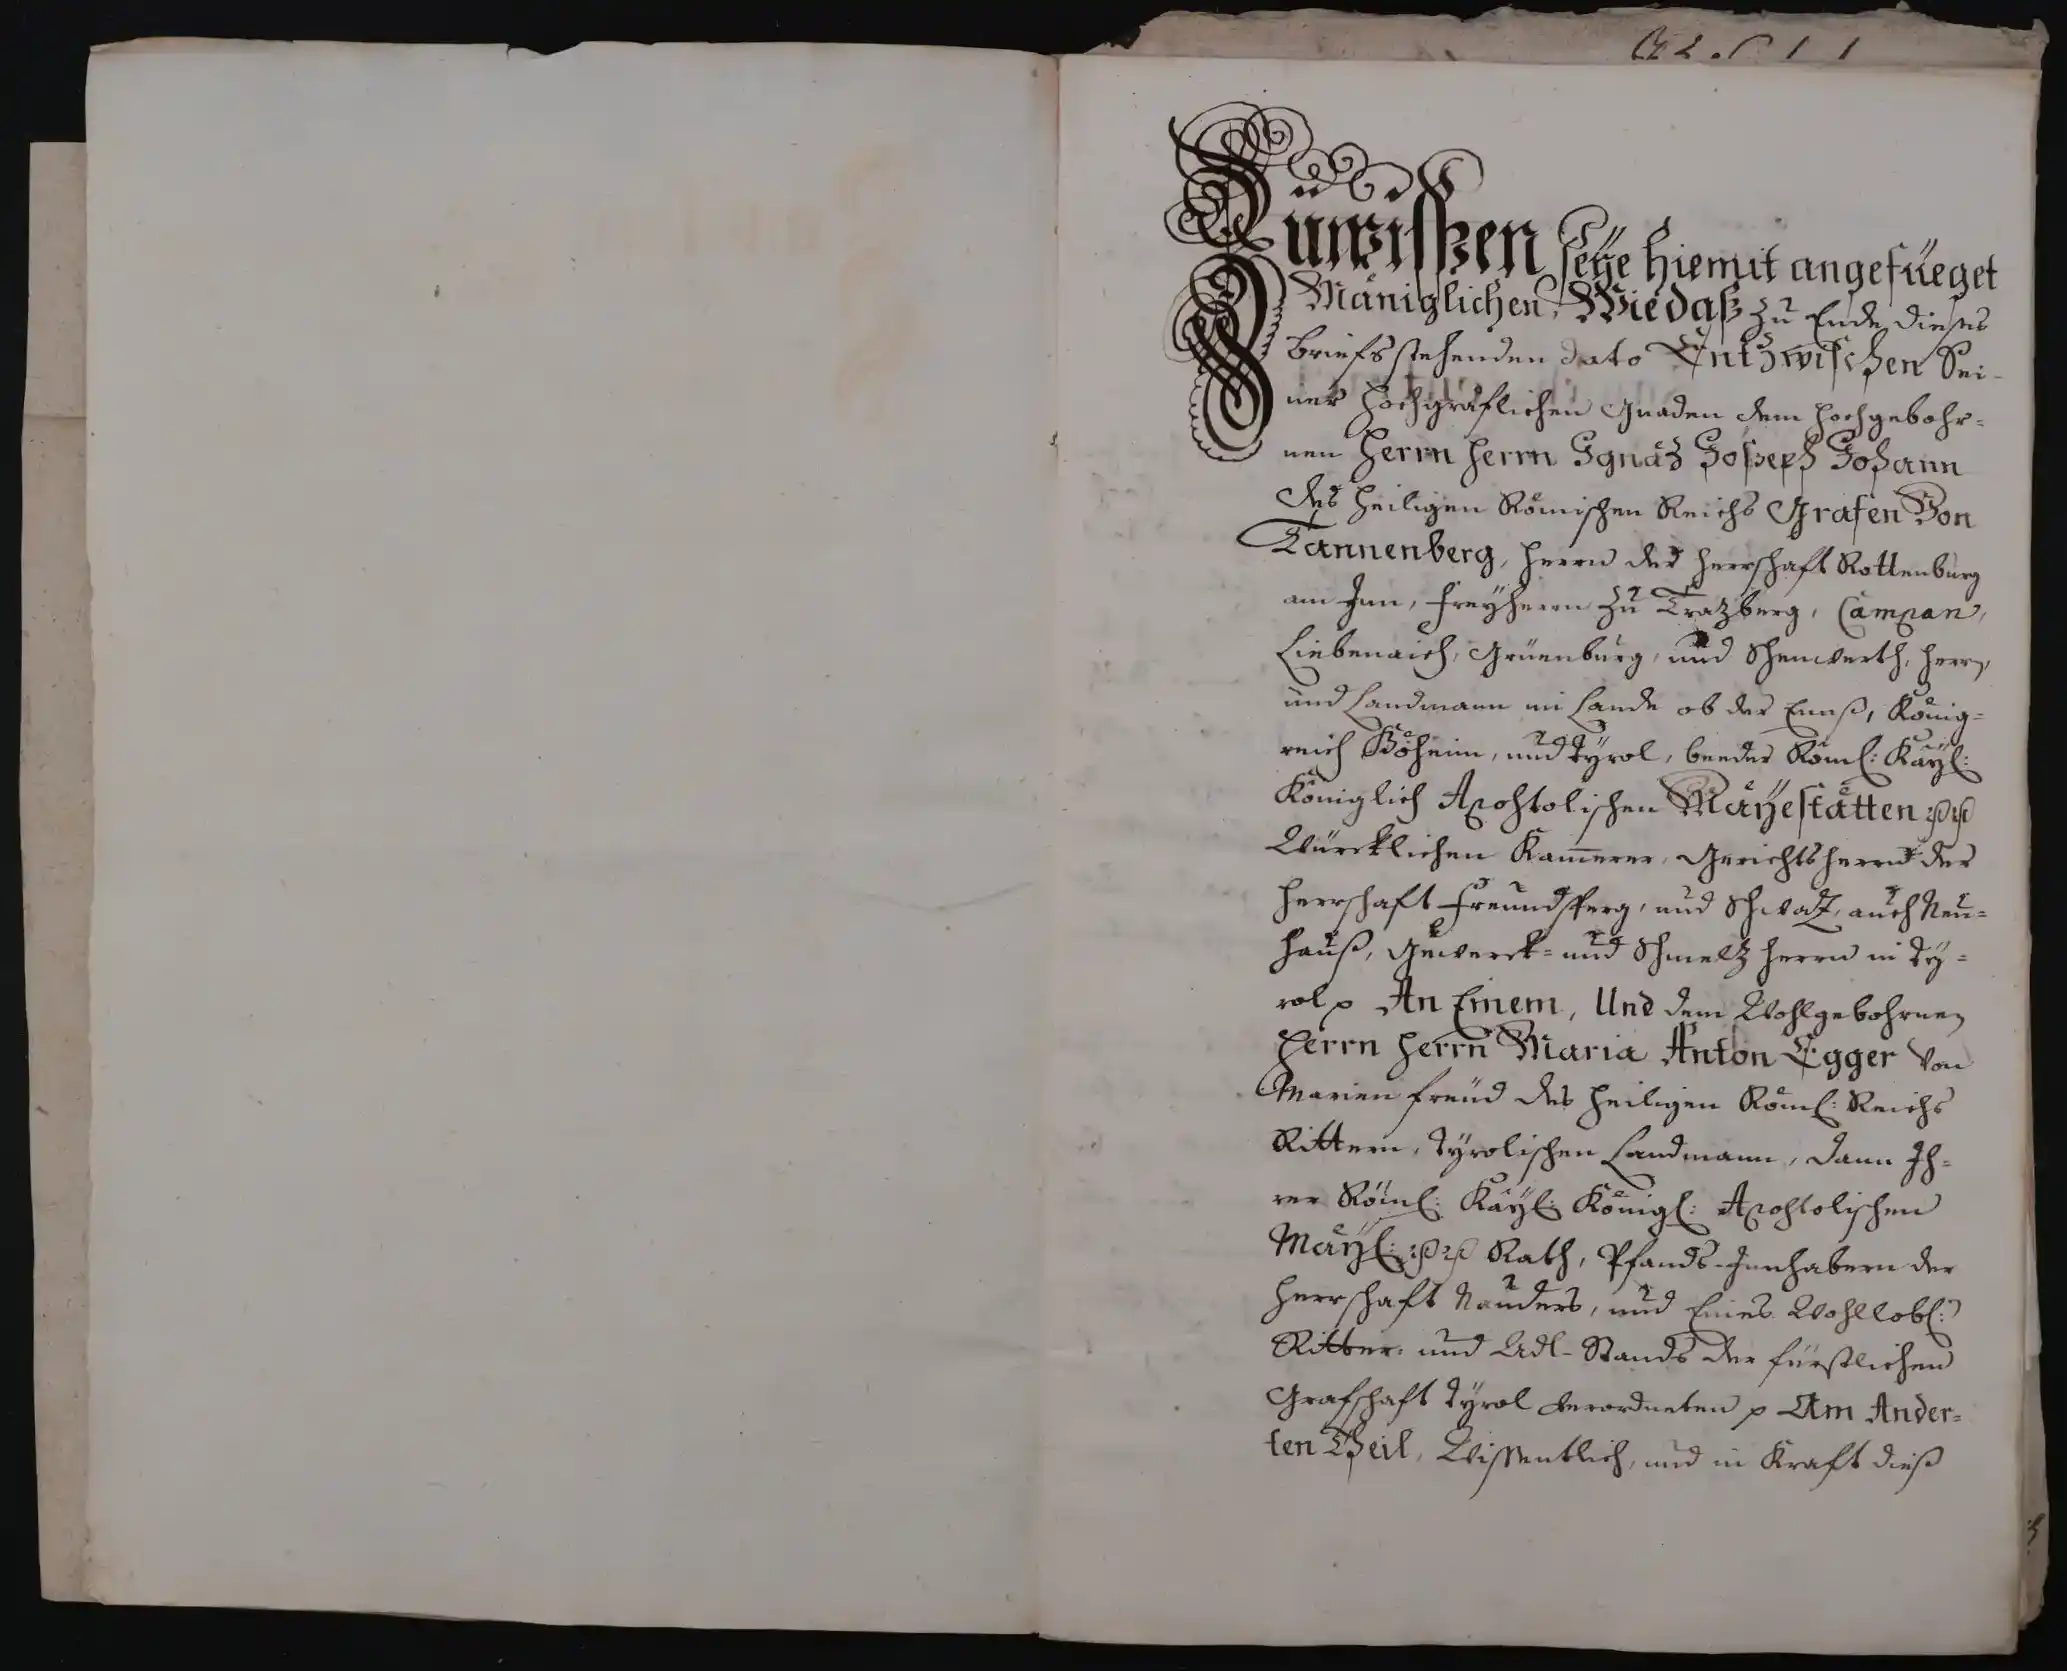 Zuwissen seÿe hiemit angefüeget
Mäniglichen, Wiedaß zu Ende dieses
briefs stehenden dato Entzwischen Sei-
ner hochgräflichen Gnaden dem hochgebohr=
nen Herrn Herrn Ignäz Joseph Johann
des heiligen Römischen Reichs Grafen Von
Tannenberg, Herrn der Herrschaft Rottenburg
am Inn, Freÿherrn zu Tratzberg, Campan,
Liebenaich, Grüenburg, und Schenwerth, Herrn,
und Landmann in Lande ob der Ennß, König=
reich Böheim, und Tÿrol, beeder Röml: Kaÿl:
Königlich Apostolischen Maÿestätten
Würcklichen Kammerer, Gerichtsherrn der
Herrschaft Freundsperg, und Schwatz, auch Neu=
hauß, Gewerck= und Schmelz Herrn in Tÿ=
rol An Einem, Und dem Wohlgebohrnen
Herrn Herrn Maria Anton Egger von
Marienfreüd des Heiligen Röml: Reichs
Rittern, Tÿrolischen Landmann, dann Ih=
rer Röml: Kaÿl: Königl: Apostolischen
Maÿl: Rath, Pfands-Innhabern der
Herrschaft Nauders, und Eines Wohllobl:
Ritter- und Adl-Stands der fürstlichen
Grafschaft Tÿrol verordneten Am Ander=
ten Theil, Wissentlich, und in Kraft dieß